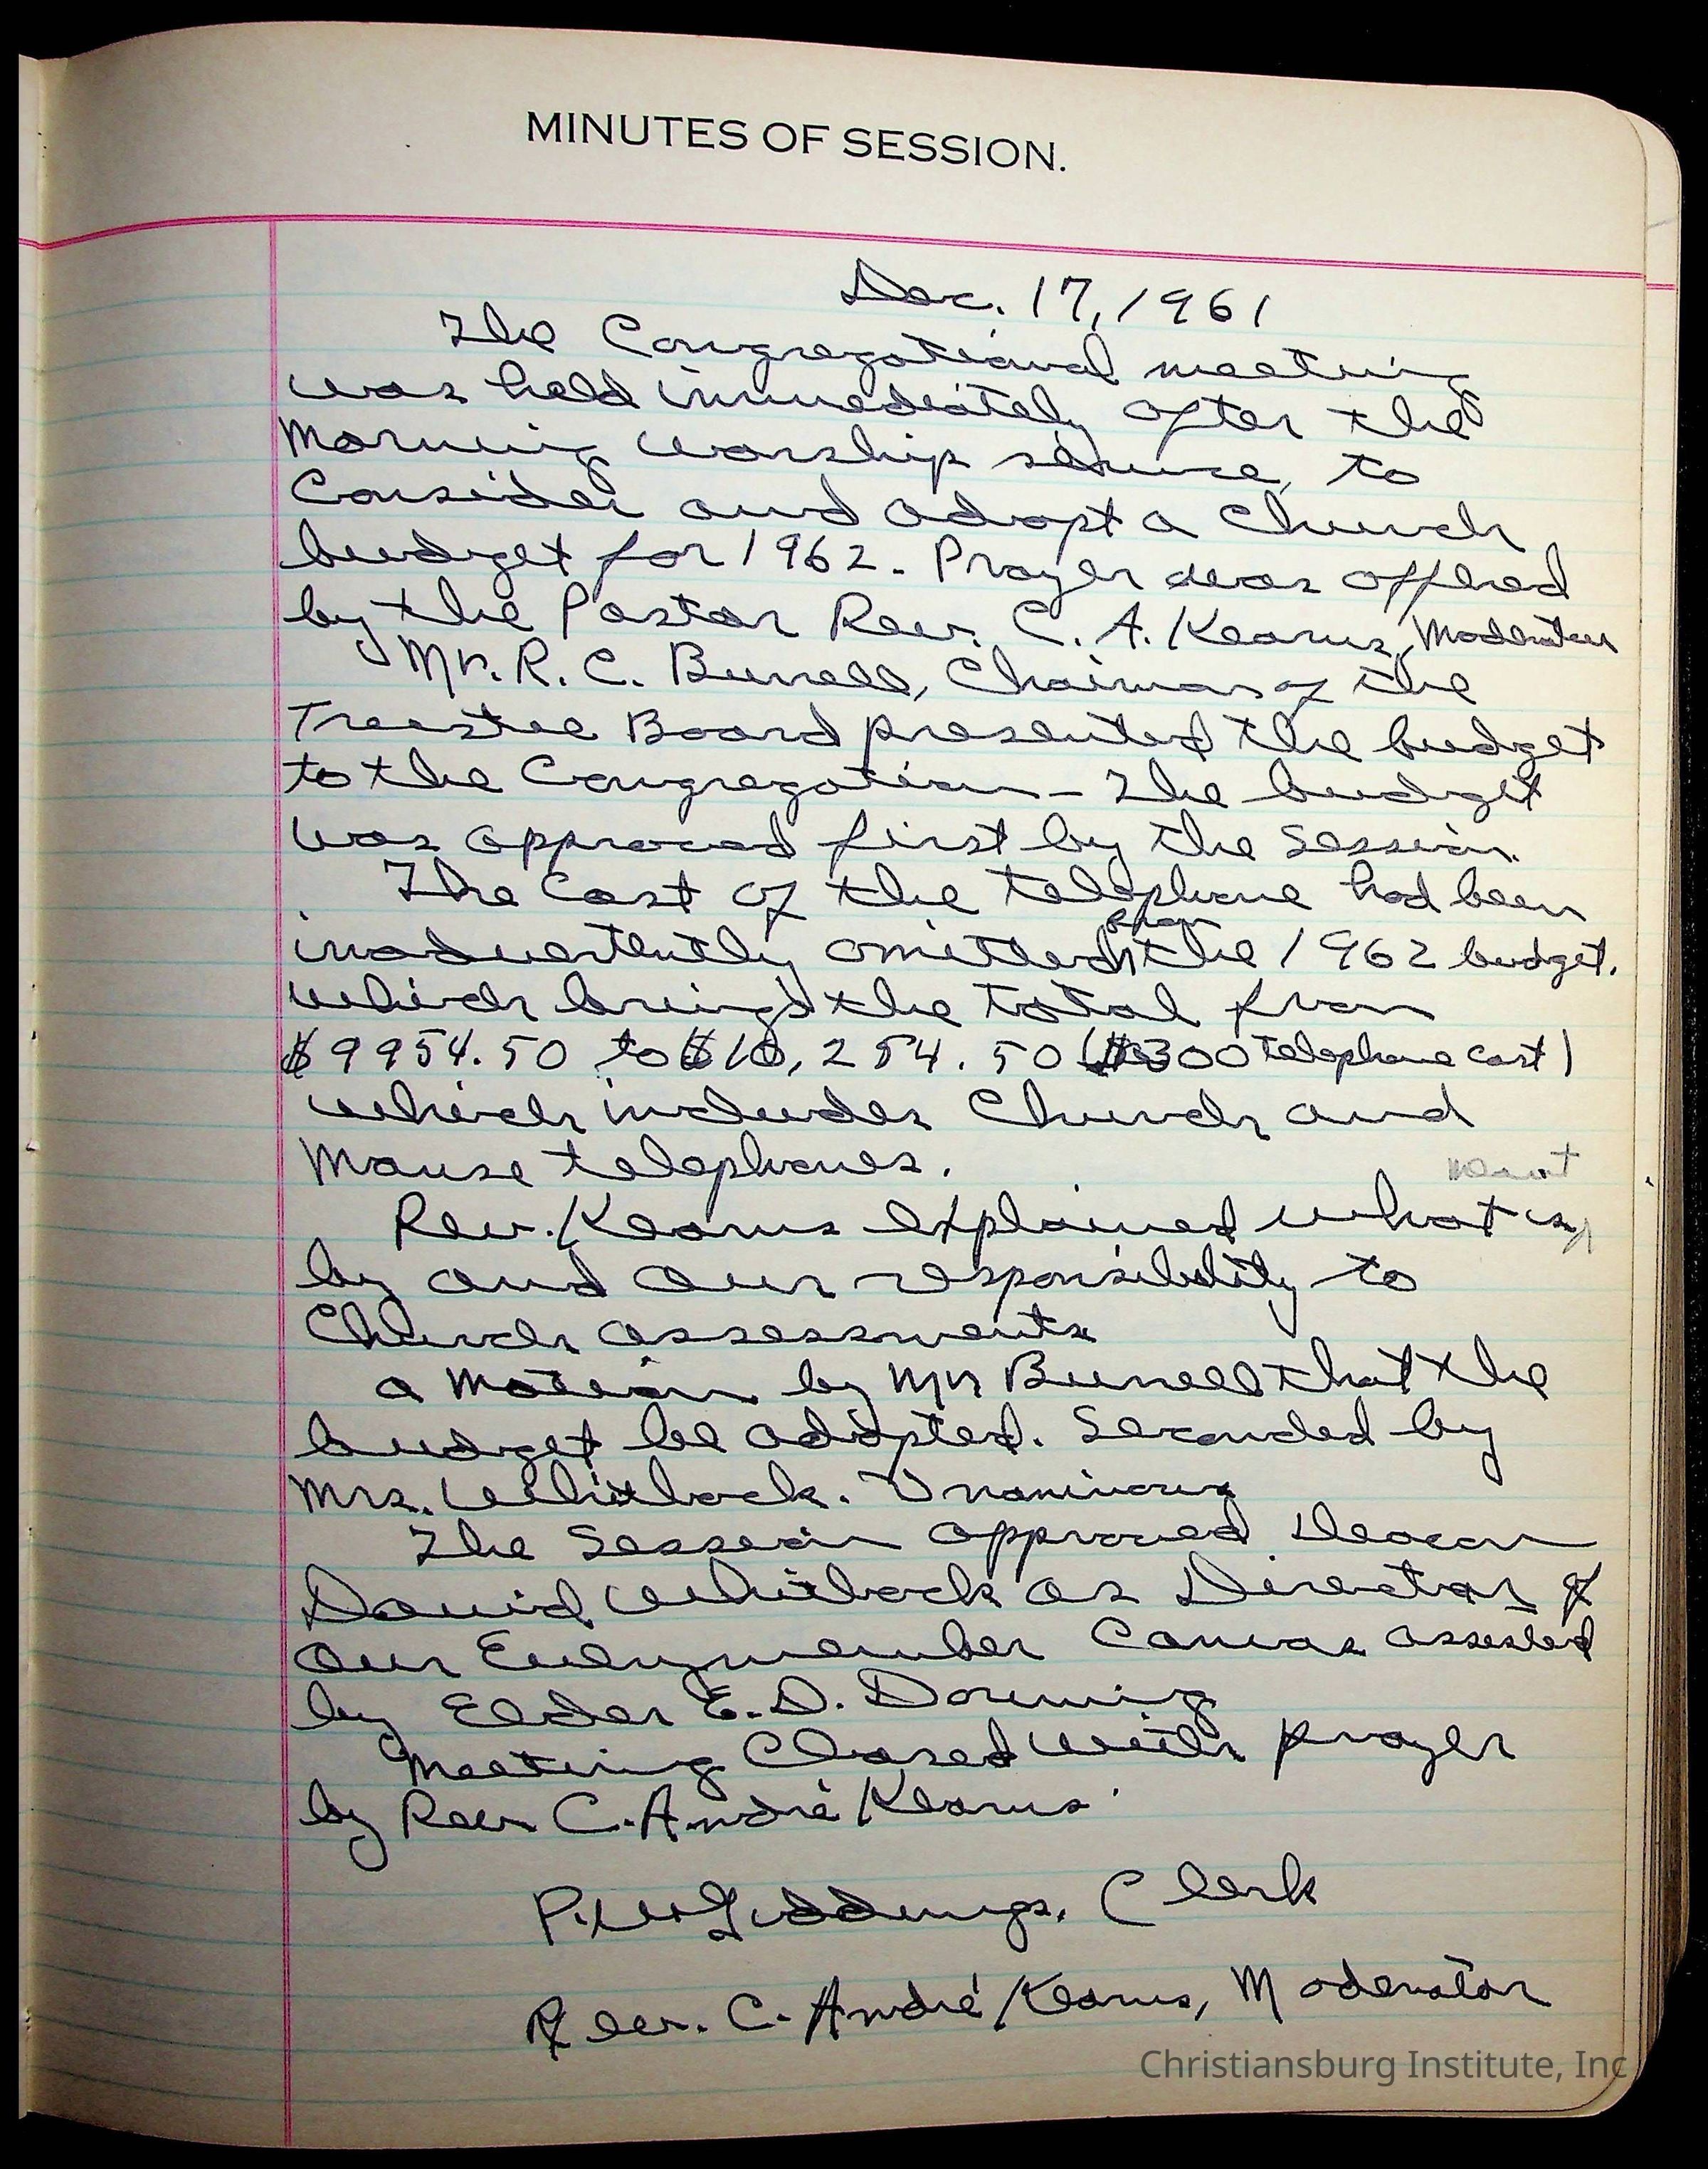 MINUTES OF SESSION.
Dec. 17, 1961
The Congregational meeting
was held immediately after the
morning worship service, to
Consider and adopt a Church
budget for 1962. Prayer was offered
by the Pastor Rev. C. A. Kearns, Moderator
Mr. R. C. Burrell, Chairman of the
Trustee Board presented the budget
to the Congregation - The budget
was approved first by the Session.
The Cost of the telephone had been
from
inadvertently omitted the 1962 budget.
which brings the total from
$9954.50 to $10,254.50 ($300 telephone cost)
which includes Church and
Manse telephones.
meant
Rev. Kearns explained what is
by and our responsibility to
Church assessments
a motion by Mr Burrell that the
budget be adopted. Seconded by
Mrs. Whitlock. Unanimous
The Session approved Deacon
David Whitlock as Director of
our Everymember Canvas assisted
by Elder E. D. Downing
Meeting Closed with prayer
by Rev C. André Kearns.
P. W. Giddings, Clerk
Rev. C. André Kearns, Moderator
Christiansburg Institute, Inc